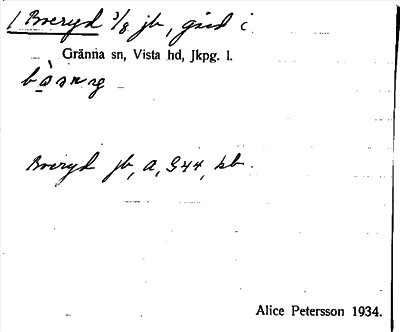 1 Boeryd 3/8 jb, gård i
Gränna sn, Vista hd, Jkpg. l.
Boeryd jb, A, G44, kb.
Alice Petersson 1934.